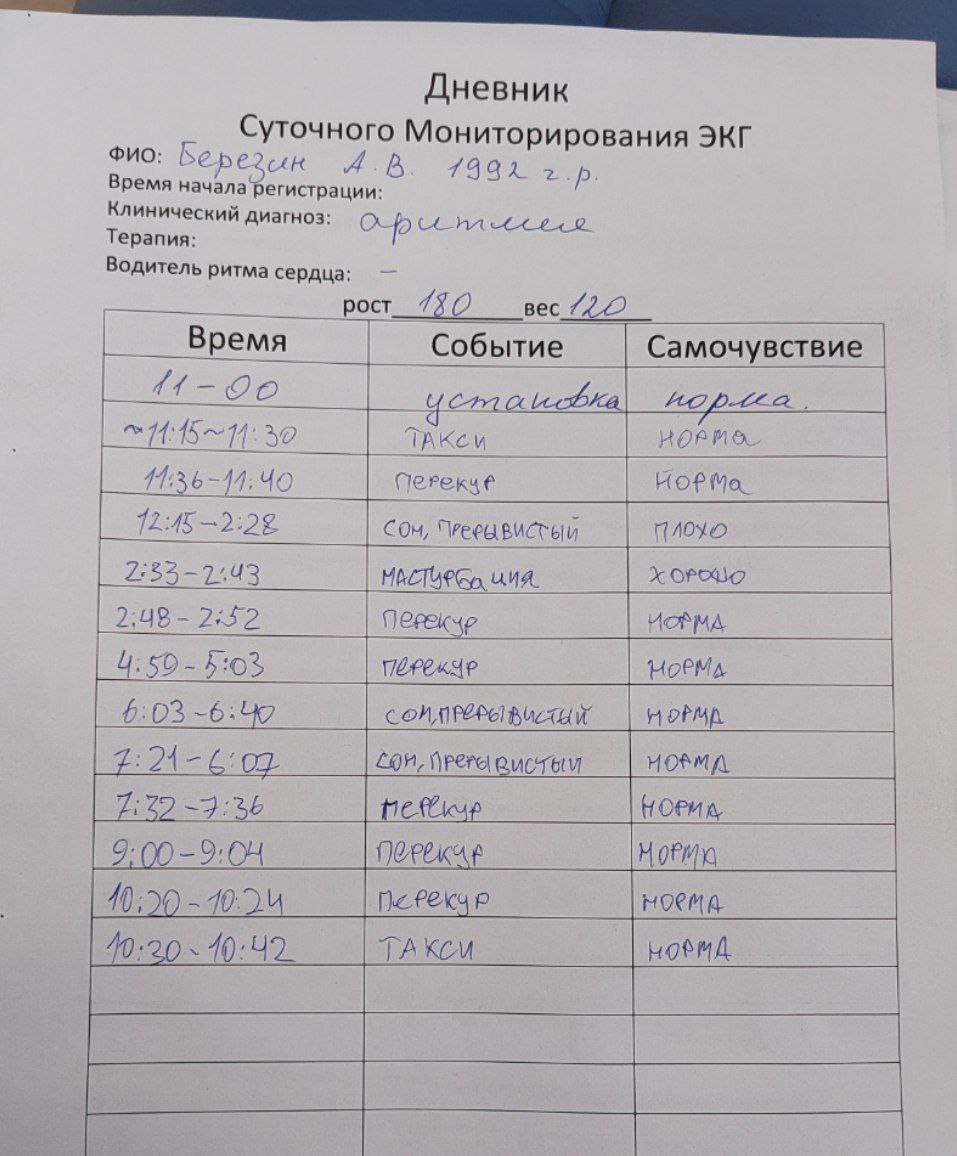 Дневник
Суточного Мониторирования ЭКГ
ФИО: Березин А.В. 1992 г.р.
Время начала регистрации:
Клинический диагноз: аритмия
Терапия:
Водитель ритма сердца: –
рост 180 вес 120
Время Событие Самочувствие
11-00 установка норма.
~11:15~11:30 ТАКСИ НОРМа
11:36-11:40 Перекур НОРМа
12:15-2:28 СОН, ПРЕРЫВИСТЫЙ ПЛОХО
2:33-2:43 МАСТУРБация ХОРОШО
2:48-2:52 Перекур НОРМА
4:59-5:03 Перекур НОРМА
6:03-6:40 СОН,ПРЕРЫВИСТЫЙ НОРМА
7:21-6:07 СОН, ПРЕРЫВИСТЫЙ НОРМА
7:32-7:36 Перекур НОРМА
9:00-9:04 Перекур НОРМА
10:20-10:24 Перекур НОРМА
10:30-10:42 ТАКСИ НОРМА